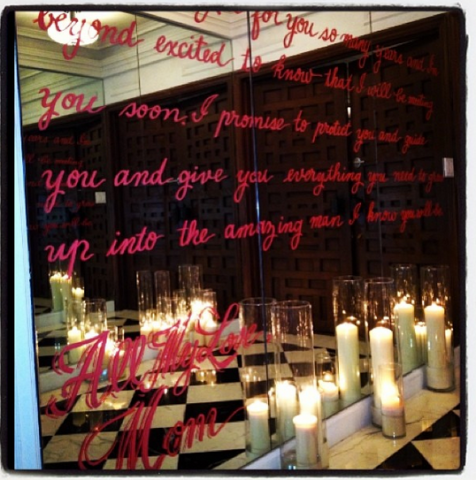 for you so many years and I'm
beyond excited to know that I will be meeting
you soon. I promise to protect you and guide
you and give you everything you need to grow
up into the amazing man I know you will be
All My Love
Mom